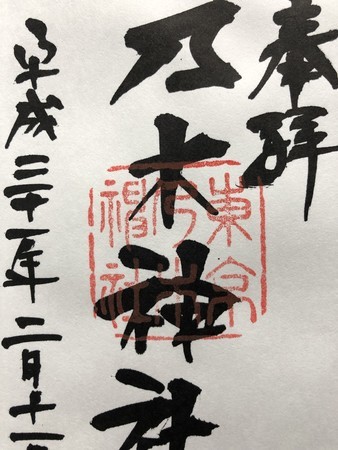 奉拝
乃木神社
東京
乃木
神社
平成三十一年二月十一